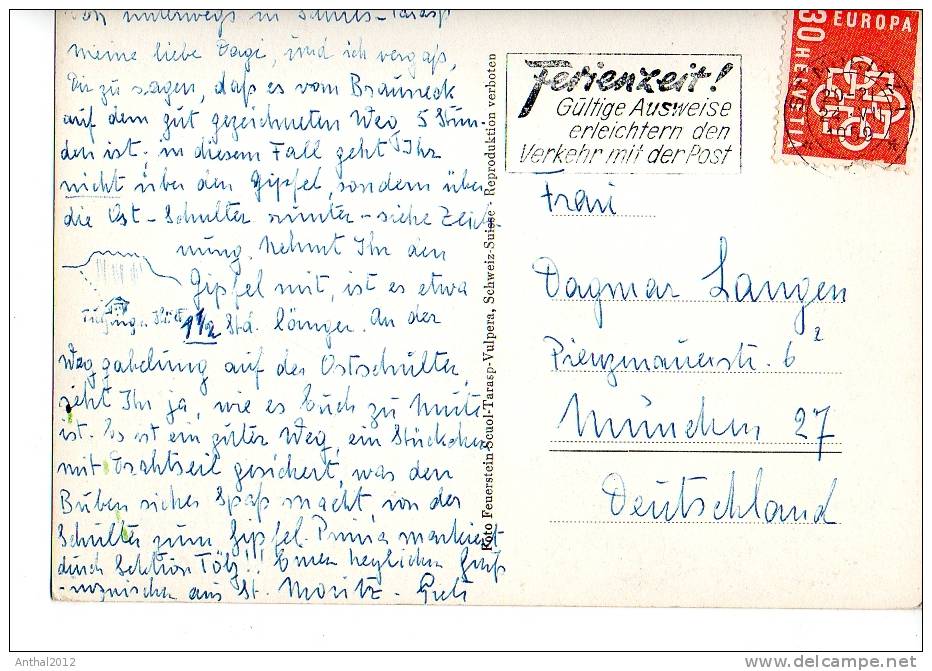 Von unterwegs in Schuls-Tarasp
meine liebe Dagi, und ich vergaß,
Dir zu sagen, daß es vom Brauneck
auf dem gut gezeichneten Weg 5 Stun-
den ist; in diesem Fall geht Ihr
nicht über den Gipfel, sondern über
die Ost-Schulter runter - siehe Zeich-
nung. Nehmt Ihr den
Gipfel mit, ist es etwa
1 1/2 Std. länger. An der
Weggabelung auf der Ostschulter
seht Ihr ja, wie es Euch zu Mute
ist. Es ist ein guter Weg, ein Stückchen
mit Drahtseil gesichert, was den
Buben sicher Spaß macht, von der
Schulter zum Gipfel. Prima markiert
durch Sektion Tölz!! Einen herzlichen Gruß
inzwischen aus St. Moritz - Greti
Foto Feuerstein-Scuol-Tarasp-Vulpera, Schweiz-Suisse - Reproduktion verboten
Ferienzeit!
Gültige Ausweise
erleichtern den
Verkehr mit der Post
30 EUROPA
HELVETIA
20-21
1959
Frau
Dagmar Langen
Pienzenauerstr. 6 2
München 27
Deutschland
Anthal2012
http://www.delcampe.net